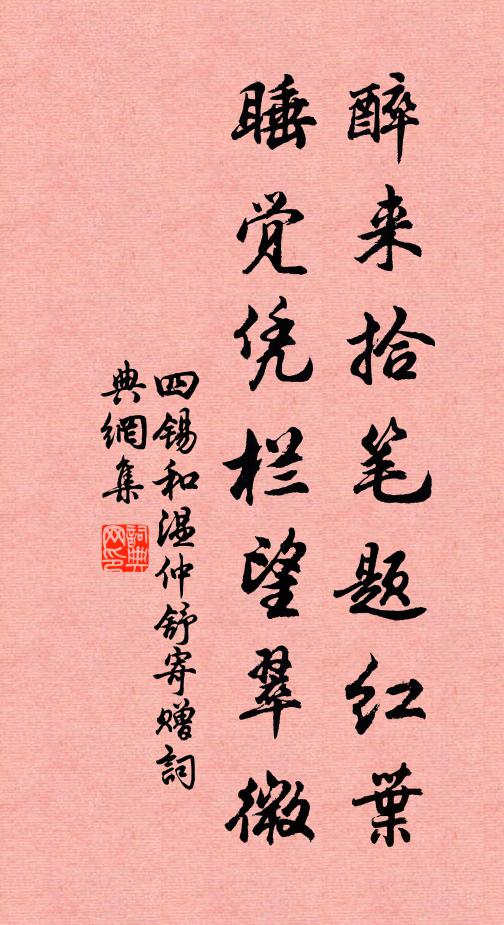 醉来拾笔题红葉
睡觉凭栏望翠微
四锡和温仲舒寄赠詞
典網集
詞典
网印